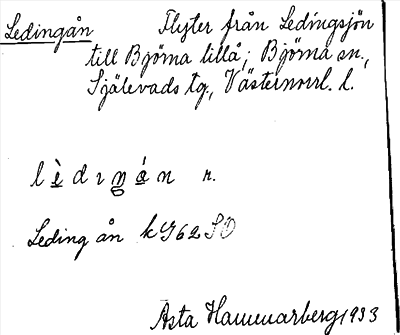 Ledingån Flyter från Ledingsjön
till Björna lillå; Björna sn.,
Själevads tg., Västernorrl. l.
lèdıŋán n.
Leding ån kG62SO
Asta Hammarberg 1933